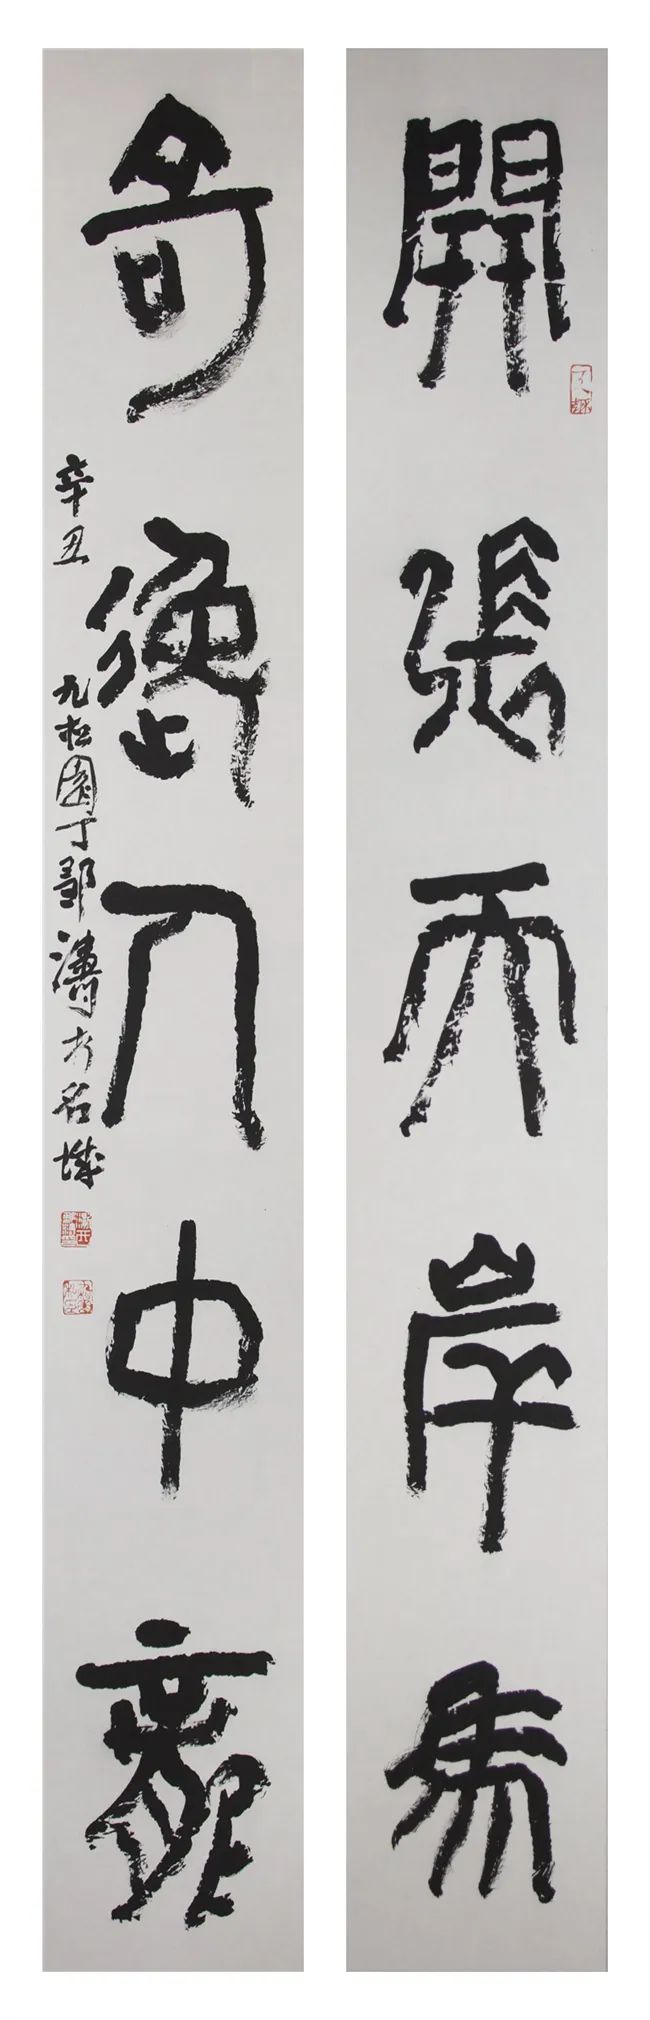 開張天岸馬
奇逸人中龍
辛丑
九松園丁鄒濤於名城